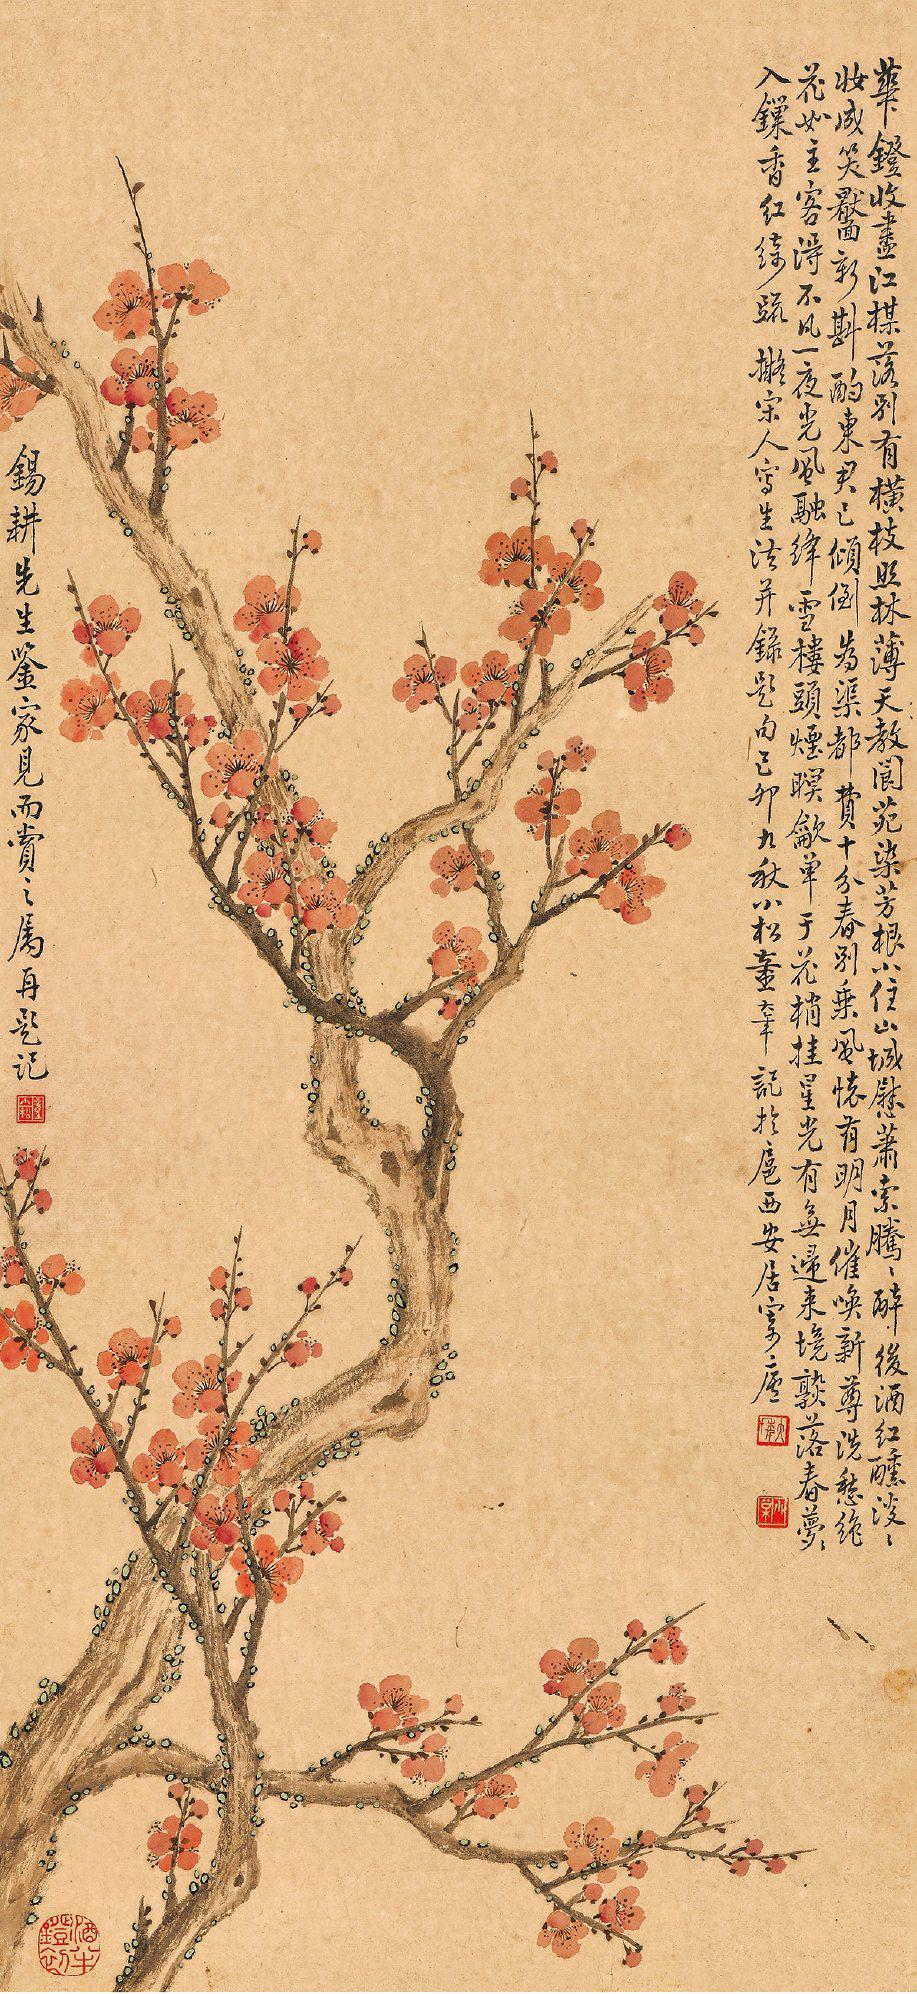 華鐙收盡江楳落別有橫枝照林薄天教閬苑染芳根小住山城慰蕭索騰〻醉後酒紅醺淡〻
妝成笑靨新斟酌東君已傾倒為渠都費十分春別乘風懷有明月催喚新尊洗愁絕
花如主客得不凡一夜光風融絳雪樓頭煙暝歛單于花梢挂星光有無歸来境熟落春夢〻
入鏁香紅綺疏 擬宋人寫生法并錄題句己卯九秋小松臺笨記於扈西安居寄廬
錫耕先生鉴家見而賞之屬再題記